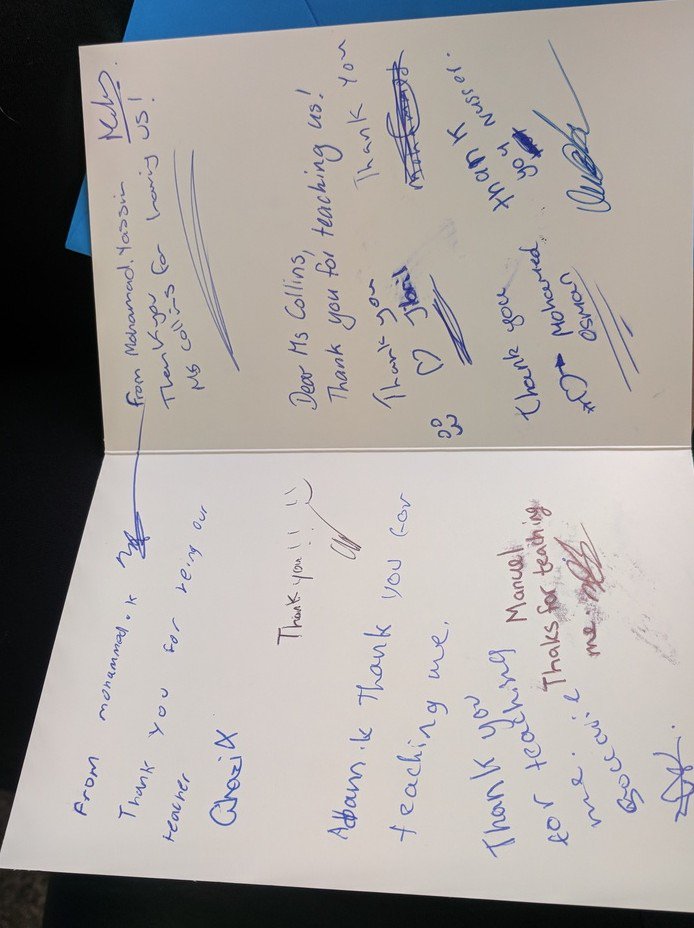 From mohammad.k
Thank you for being our
teacher
Thank you!!
Adam.k Thank you for
teaching me.
Thank you
for teaching
me.
Manuel
Thaks for teaching
me.
From Mohamad.Yassin
Thank you for having us!
Ms Collins
Dear Ms Collins,
Thank you for teaching us!
Thank you
Jibril
Thank you
Thank
you Nusser.
Thank you
Mohamed
Osman